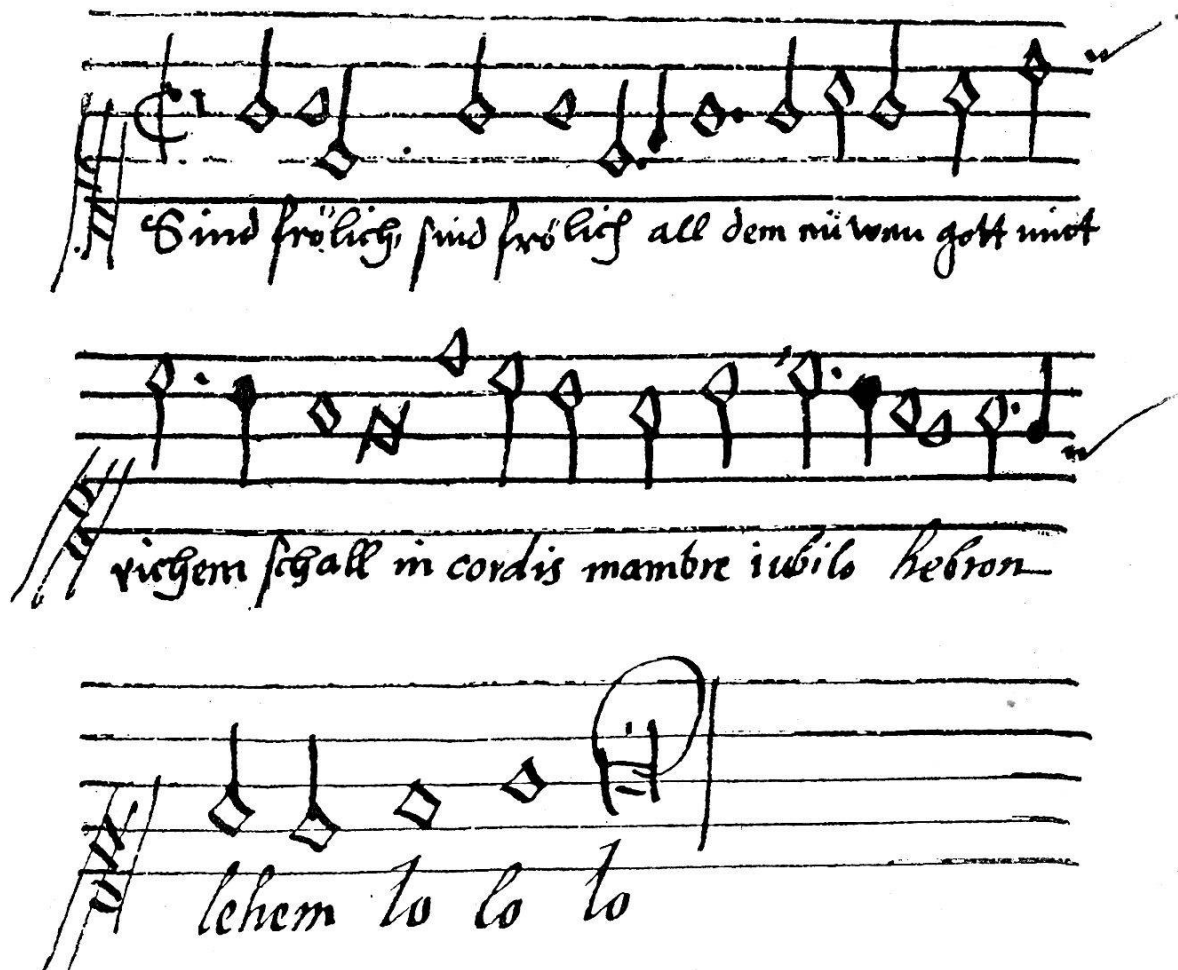 Sind frölich, sind frölich all dem nüwen gott
richem schall in cordis mambre iubilo hebron
lehem lo lo lo